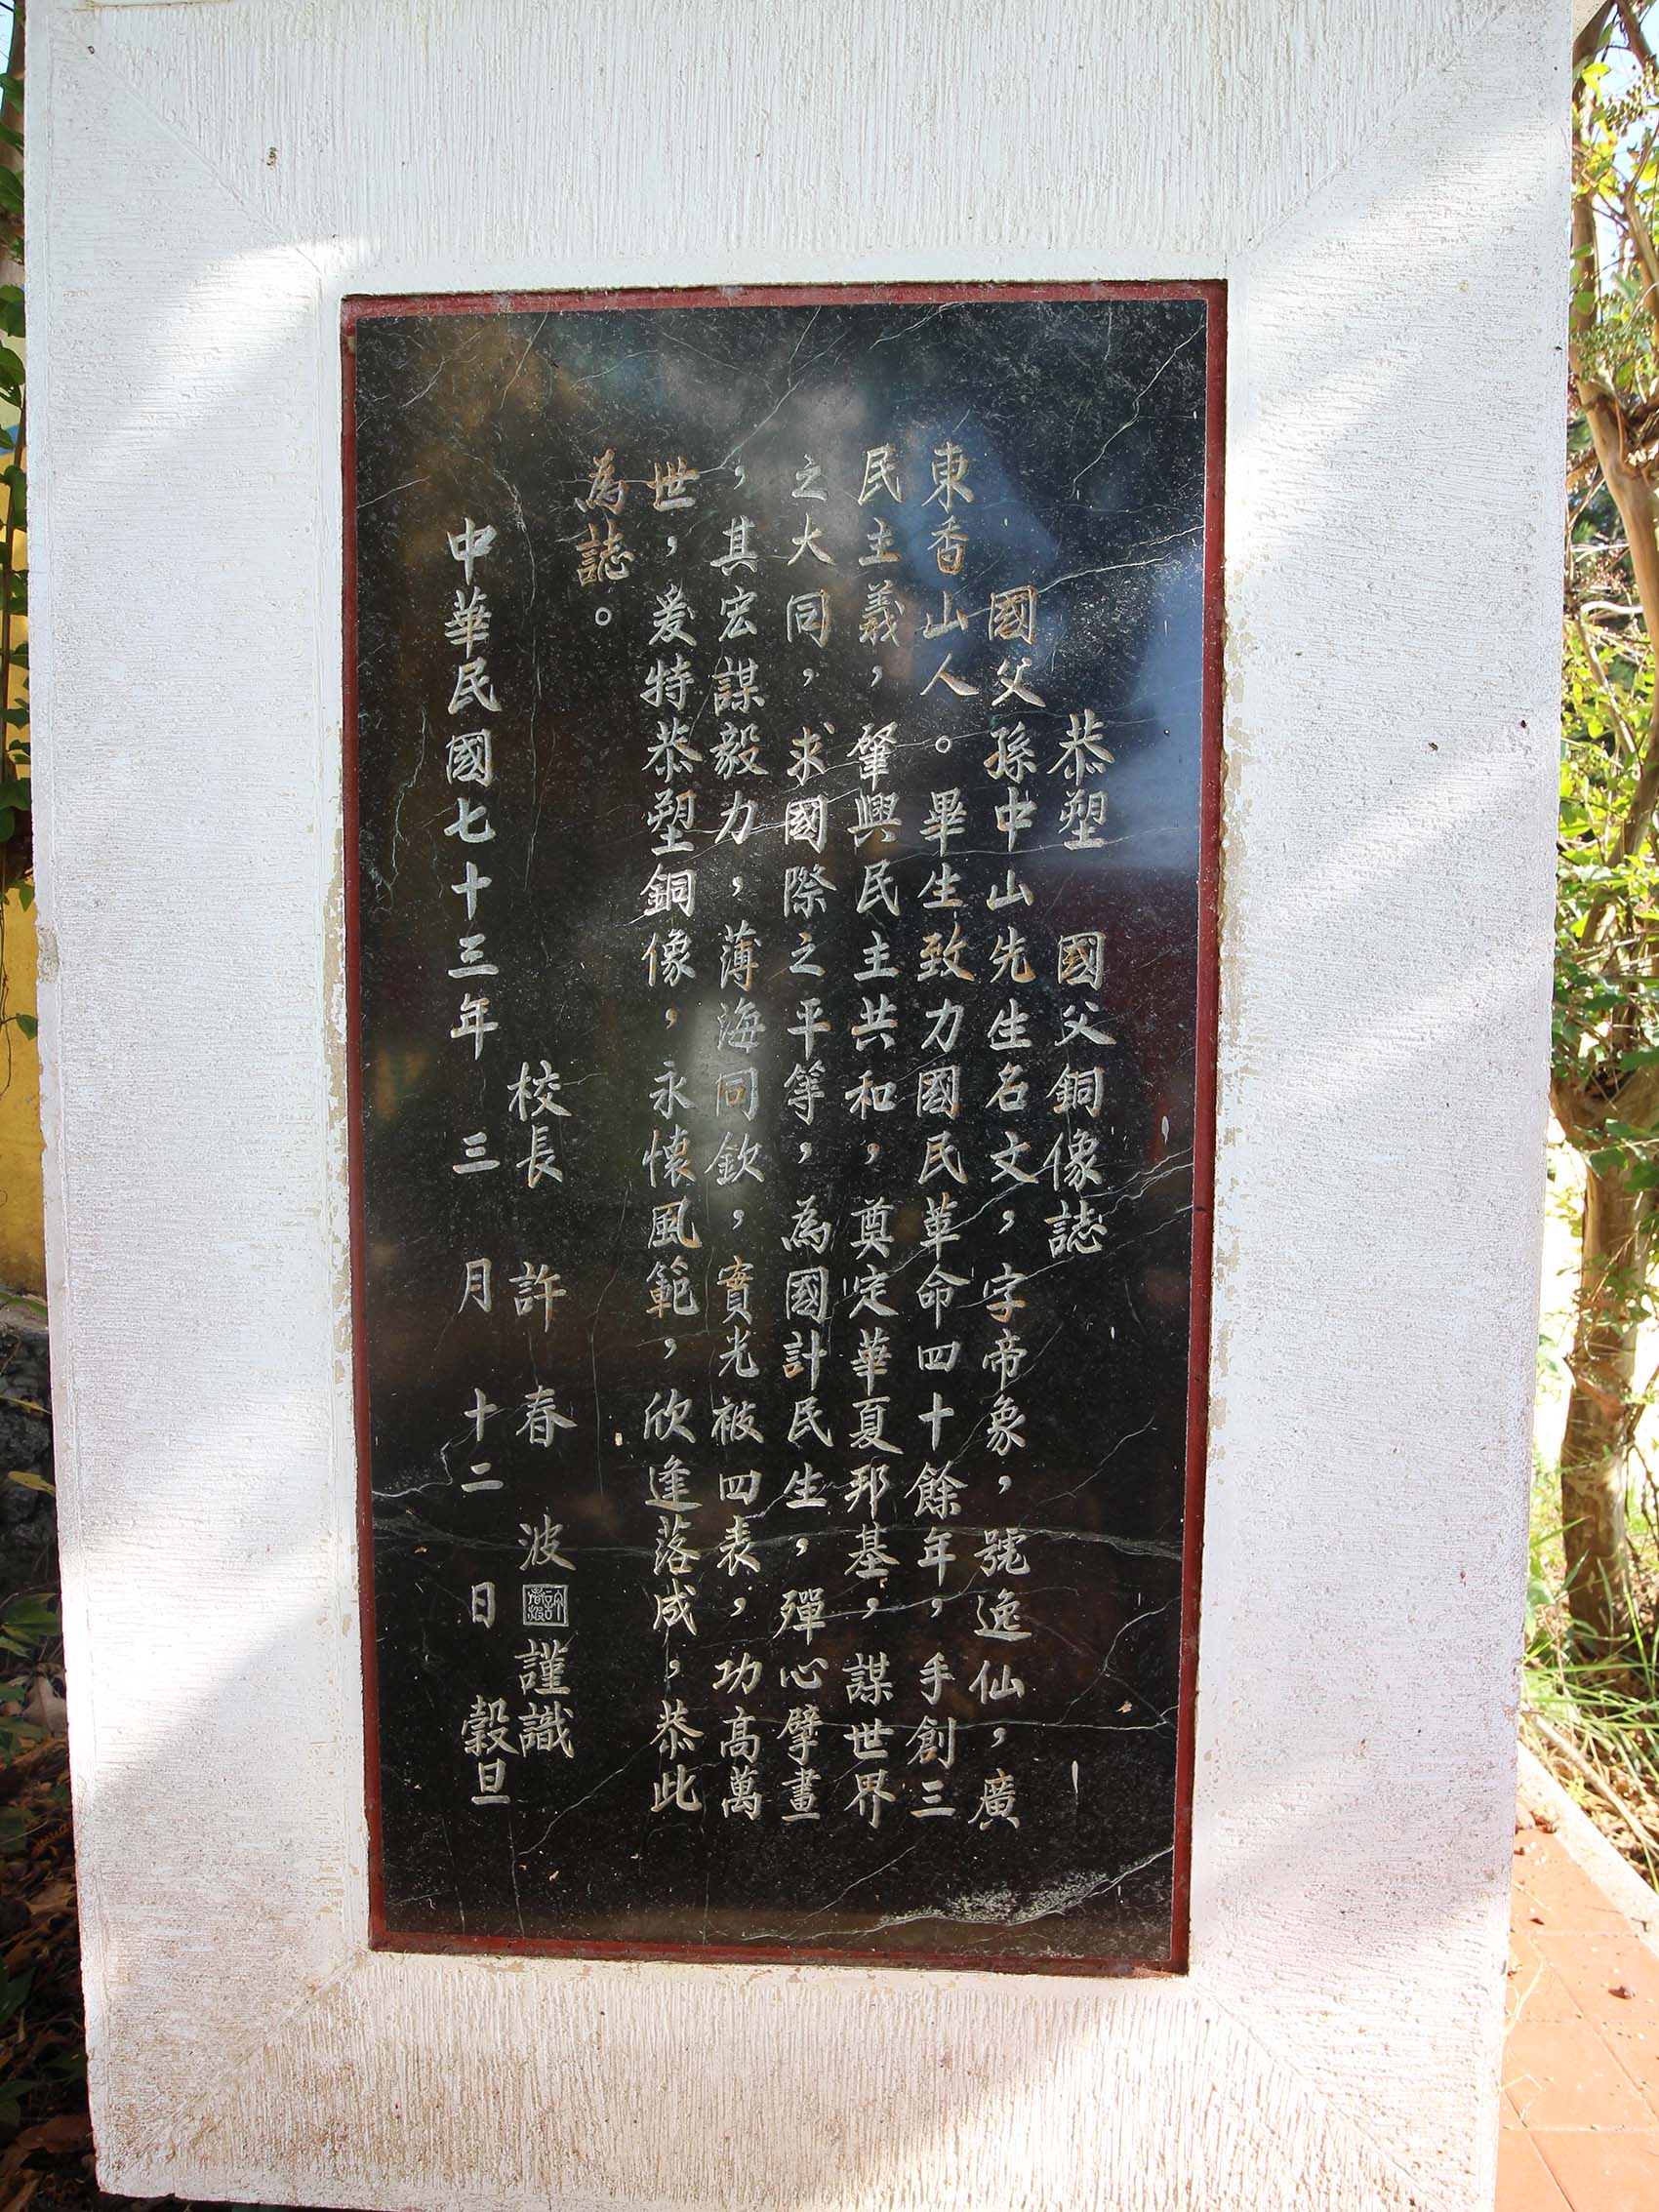 恭塑　國父銅像誌
國父孫中山先生名文，字帝象，號逸仙，廣
東香山人。畢生致力國民革命四十餘年，手創三
民主義，肇興民主共和，奠定華夏邦基，謀世界
之大同，求國際之平等，為國計民生，殫心擘畫
，其宏謀毅力，薄海同欽，實光被四表，功高萬
世，爰特恭塑銅像，永懷風範，欣逢落成，恭此
為誌。
校長　許　春　波　謹識
中華民國七十三年　三　月　十二　日　穀旦